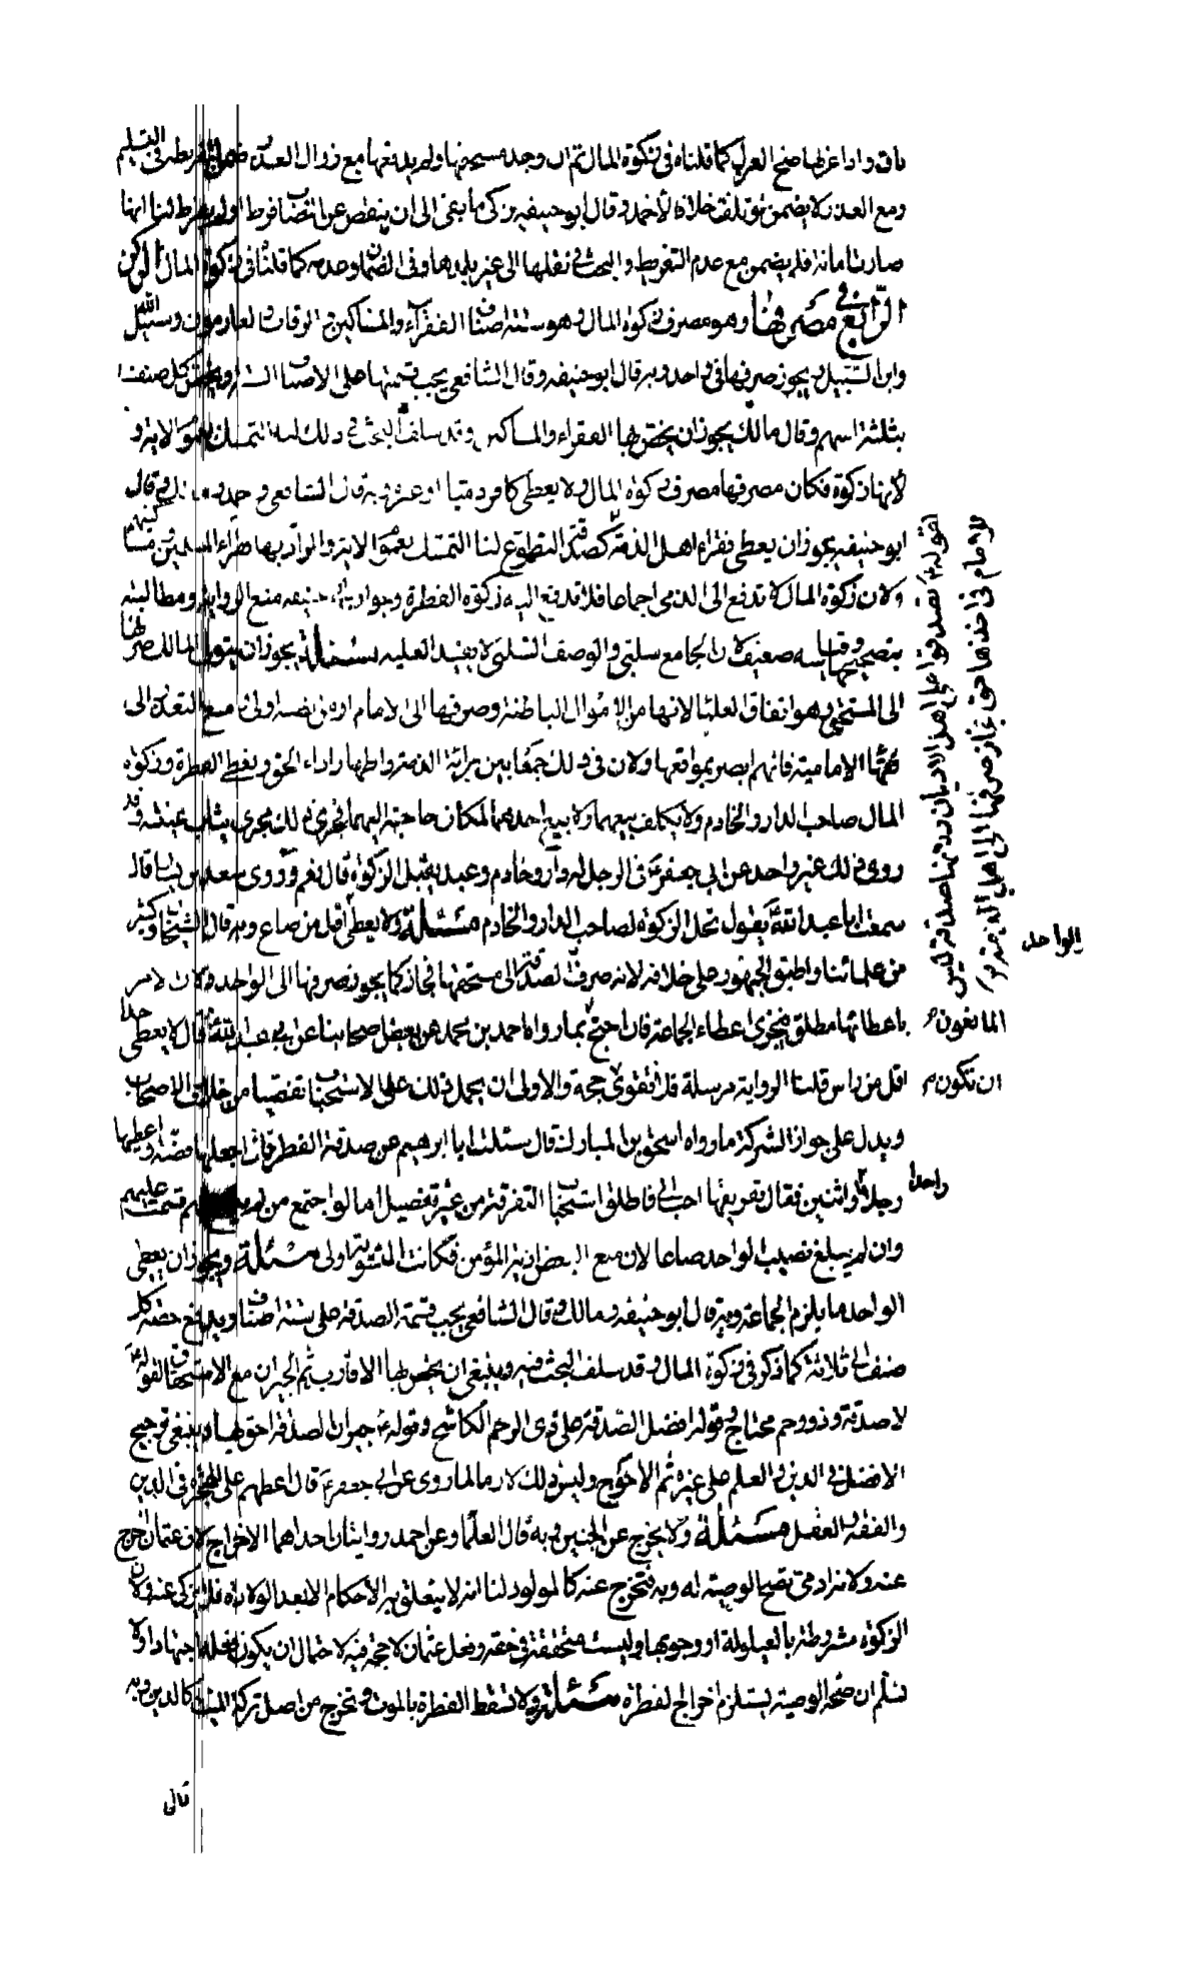 باق واذا عزلها صح العزل كما قلناه فى زكوة المال ثم ان وجد مستحقها ولم يدفعها مع زوال العذر ضمن لتفريطه فى التسليم
ومع العذر لا يضمن لو تلف خلافا لأحمد وقال ابو حنيفه يزكى ما بقى الى ان ينقص عن النصاب فرط او لم يفرط لنا انها
صارت امانة فلا يضمن مع عدم التفريط والبحث فى نقلها الى غير بلدها وفى الضمان وعدمه كما قلنا فى زكوة المال الركن
الرابع فى مصرفها وهو مصرف زكوة المال وهو ستة اصناف الفقرآء والمساكين و الرقاب والغارمون وسبيل الله
وابن السبيل ويجوز صرفها فى واحد وبه قال ابو حنيفه وقال الشافعى يجب قسمتها على الاصناف الستة ويخص كل صنف
بثلثة اسهم وقال مالك يجوز ان يختص بها الفقراء والمساكين وقد سلف البحث فى ذلك لنا التمسك بعموم الاية و
لأنها زكوة فكان مصرفها مصرف زكوة المال ولا يعطى كافر ذميا او غيره وبه قال الشافعى و احمد وقال
ابو حنيفه يجوز ان يعطى فقراء اهل الذمة كصدقة التطوع لنا التمسك بعموم الاية والمراد بها فقراء المسلمين ومساكينهم
ولان زكوة المال لا تدفع الى الذمى اجماعا فلا تدفع اليه زكوة الفطرة وجواب ابى حنيفه منع الرواية ومطالبته
بتصحيحها وقياسه ضعيف لان الجامع سلبى والوصف السلبى لا يفيد العليه مسئلة يجوز ان يتولى المالك صرفها
الى المستحق وهو اتفاق العلما لانها من الاموال الباطنة وصرفها الى الامام او من نصبه اولى ومع التعذر الى
فقهآء الامامية فانهم ابصر بمواقعها ولان فى ذلك جمعا بين برائة الذمة واظهار اداء الحق ويعطى الفطرة وزكوة
المال صاحب الدار والخادم ولا يكلف بيعهما ولا بيع احدهما لمكان حاجته اليهما فجرى ذلك مجرى ثياب بدنه وقد
روى ذلك غير واحد عن ابى جعفر ع فى الرجل له دار وخادم وعبد يقبل الزكوة قال نعم وروى سعد بن يسار قال
سمعت ابا عبد الله ع يقول تحل الزكوة لصاحب الدار والخادم مسئلة ولا يعطى اقل من صاع وبه قال الشيخان وكثير
من علمائنا واطبق الجمهور على خلافه لانه صرف الصدقة الى مستحقها فجاز كما يجوز صرفها الى الواحد ولان الامر
باعطائها مطلق فيجزى اعطاء الجماعة فان احتج المانعون بما رواه احمد بن محمد عن بعض اصحابنا عن ابى عبد الله ع قال لا يعطى احدا
اقل من راس قلنا الرواية مرسلة فلا تقوى ان تكون حجة والاولى ان يحمل ذلك على الاستحباب تفصيا من خلاف الاصحاب
ويدل على جواز الشركة ما رواه اسحق بن المبارك قال سئلت ابا ابراهيم عن صدقة الفطر قلت اجعلها فضة واعطيها
رجلا واحدا او اثنين فقال تفريقها احب الى فاطلق استحباب التفرقة من غير تفصيل اما لو اجتمع من قسمت عليهم
وان لم يبلغ نصيب الواحد صاعا لان منع البعض اذية المؤمن فكانت التسوية اولى مسئلة ويجوز ان يعطى
الواحد ما يلزم الجماعة وبه قال ابو حنيفه ومالك وقال الشافعى يجب قسمة الصدقة على ستة اصناف ويدفع حصة كل
صنف الى ثلاثة كما ذكر فى زكوة المال وقد سلف البحث فيه وينبغى ان يخص بها الاقارب ثم الجيران مع الاستحقاق لقوله ع
لا صدقة وذو رحم محتاج وقوله افضل الصدقة على ذى الرحم الكاشح وقوله ع جيران الصدقة احق بها وينبغى ترجيح
الافضل فى الدين و العلم على غيره ثم الاحوج وليس ذلك لازما لما روى عن ابى جعفر ع قال اعطهم على الهجرة فى الدين
والفقه والعقل مسئلة ولا يخرج عن الجنين وبه قال العلما وعن احمد روايتان احداهما الاخراج لان عثمان اخرج
عنه ولانه ادمى تصح الوصية له وبه فتخرج عنه كالمولود لنا انه لا يتعلق به الأحكام الا بعد الولادة فلا يزكى عنه ولان
الزكوة مشروطة بالعيلولة او وجوبها وليست متحققة فى حقه وفعل عثمان لا حجة فيه لاحتمال ان يكون فعله اجتهادا ولا
نسلم ان صحة الوصية يستلزم اخراج الفطرة مسئلة ولا تسقط الفطرة بالموت وتخرج من اصل تركة الميت كالدين وبه
لقوله ع تصدقوا على اهل الاديان
الى اهل الذمة
الواحد
المانعون
ان تكون
واحدا
قال